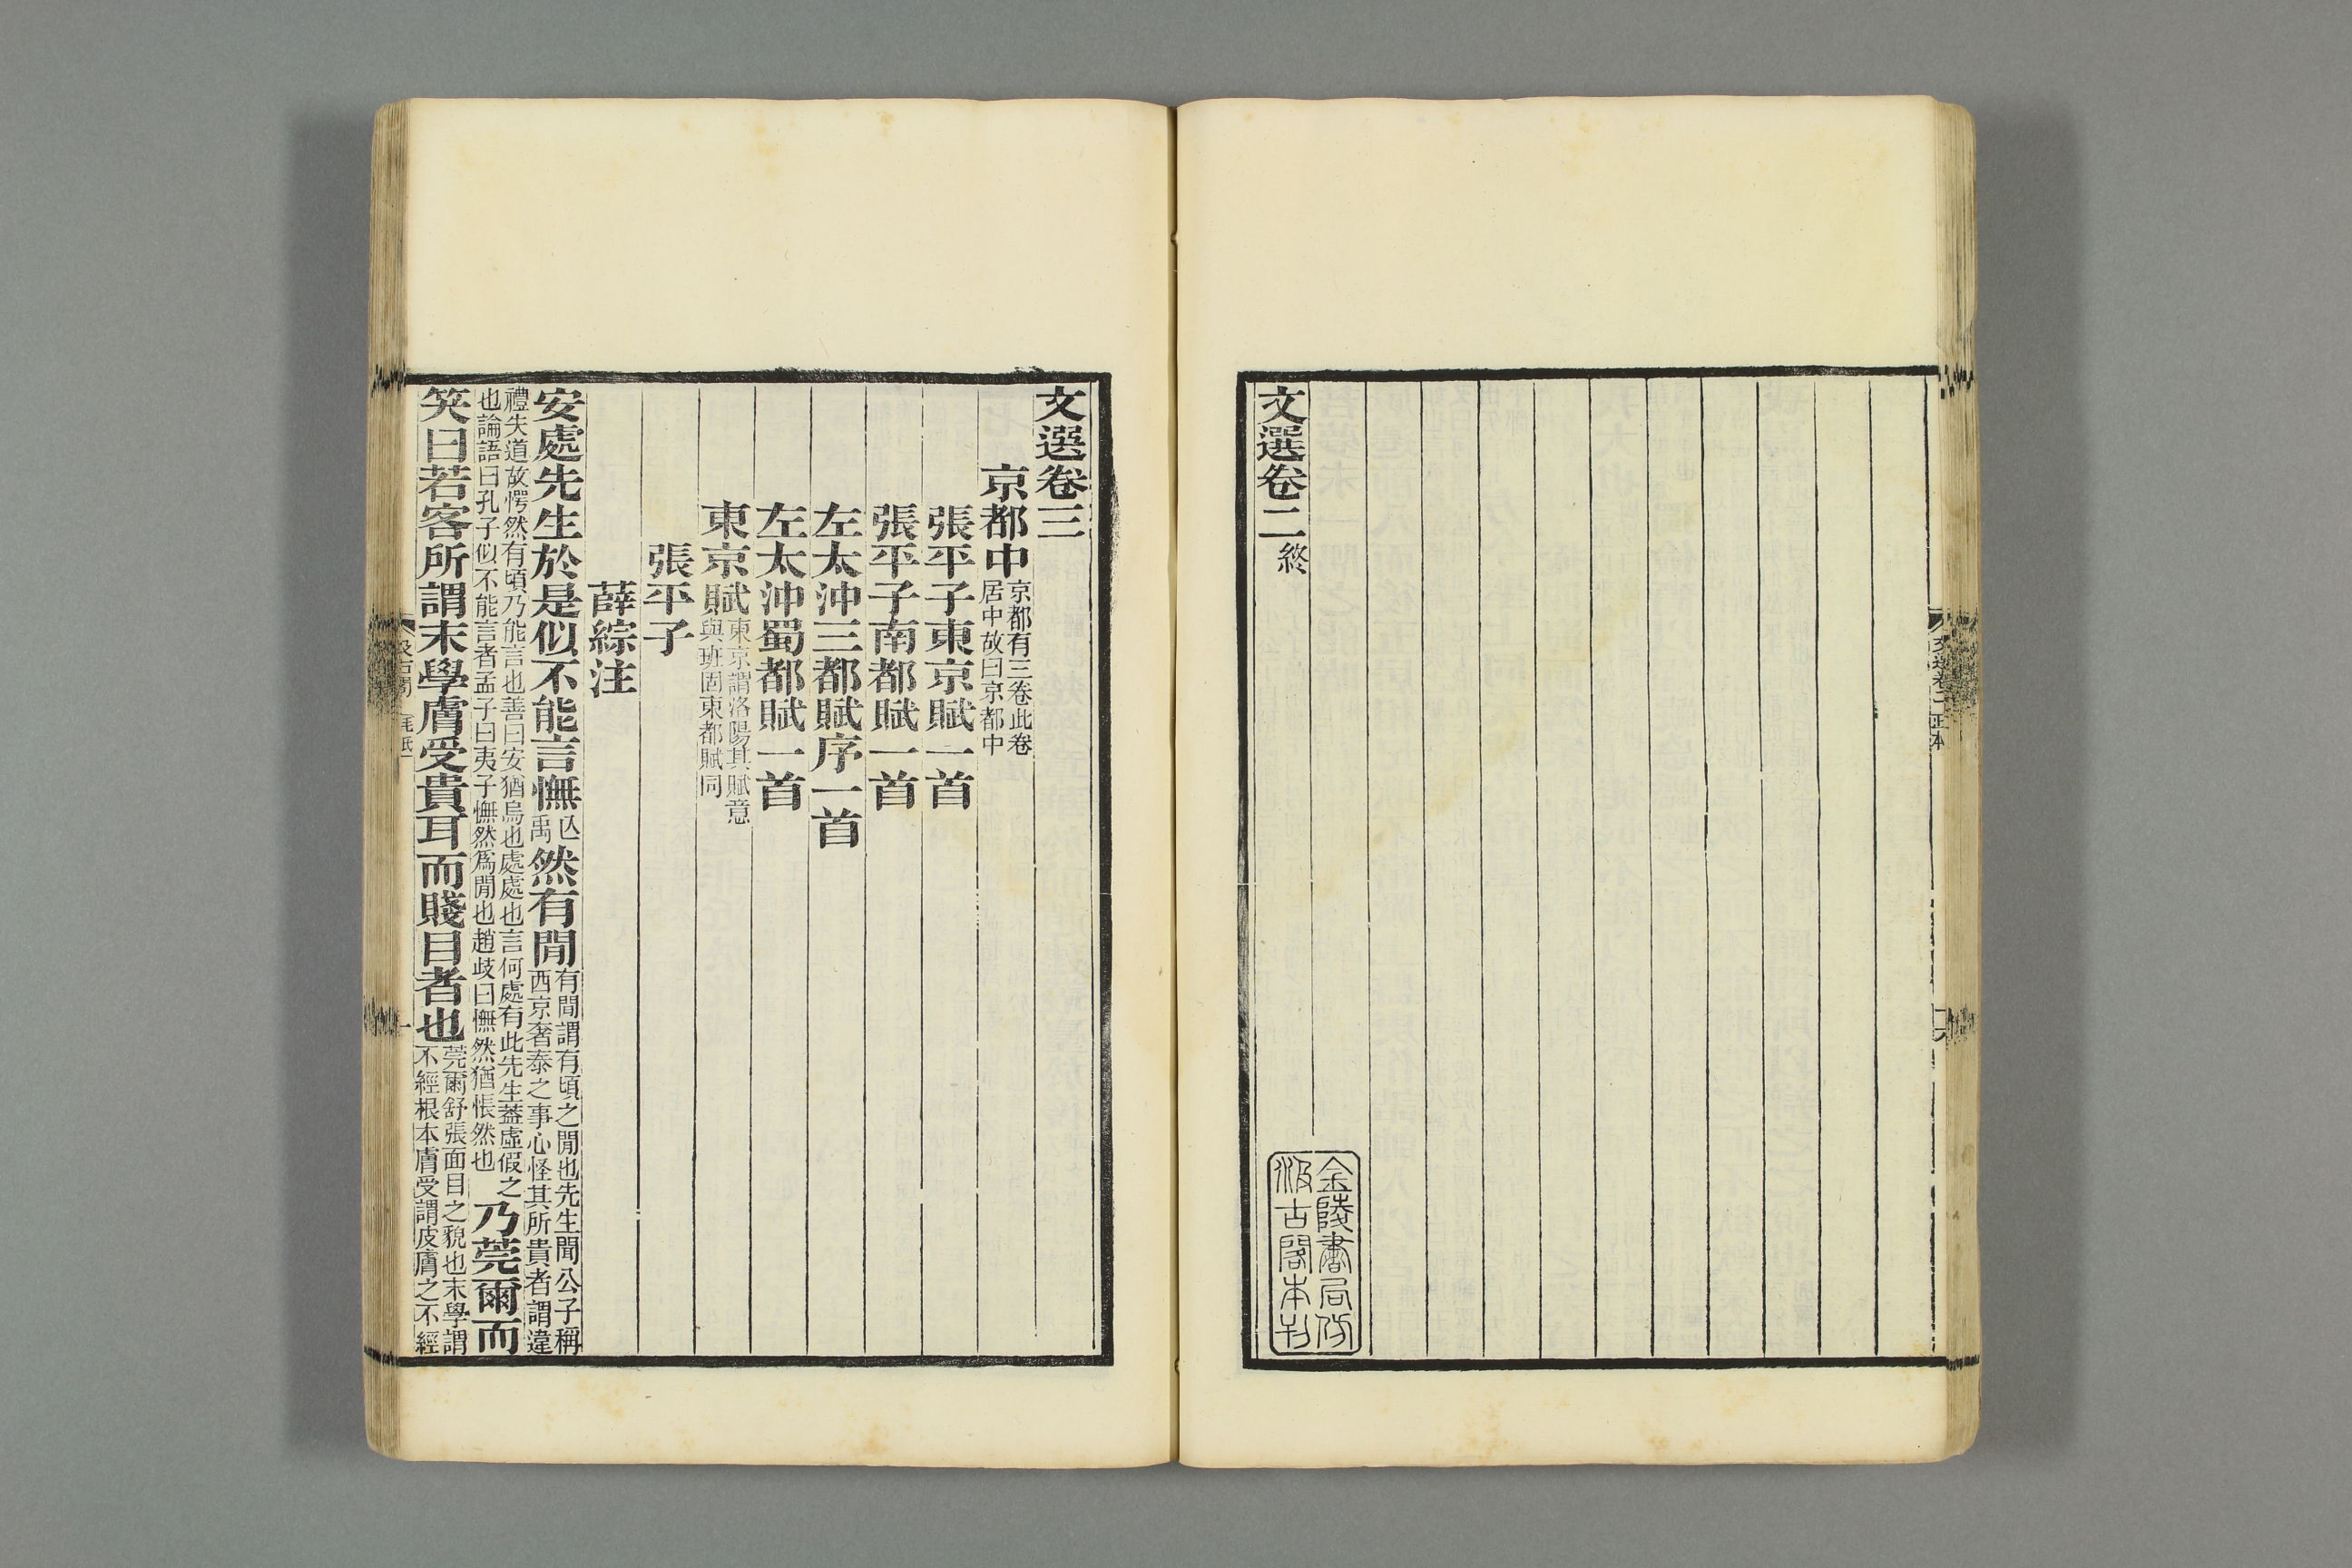 文選卷二終
金陵書局仿
汲古閣本刊
文選卷三
京都中京都有三卷此卷居中故曰京都中
張平子東京賦一首
張平子南都賦一首
左太沖三都賦序一首
左太沖蜀都賦一首
東京賦東京謂洛陽其賦意與班固東都賦同
張平子
薛綜注
安處先生於是似不能言憮亾禹然有閒有閒謂有頃之閒也先生聞公子稱西京奢泰之事心怪其所貴者謂違
禮失道故愕然有頃乃能言也善曰安猶烏也處處也言何處有此先生葢虛假之也論語曰孔子似不能言者孟子曰夷子憮然爲閒也趙歧曰憮然猶悵然也乃莞爾而
笑曰若客所謂末學膚受貴耳而賤目者也莞爾舒張面目之貌也末學謂不經根本膚受謂皮膚之不經